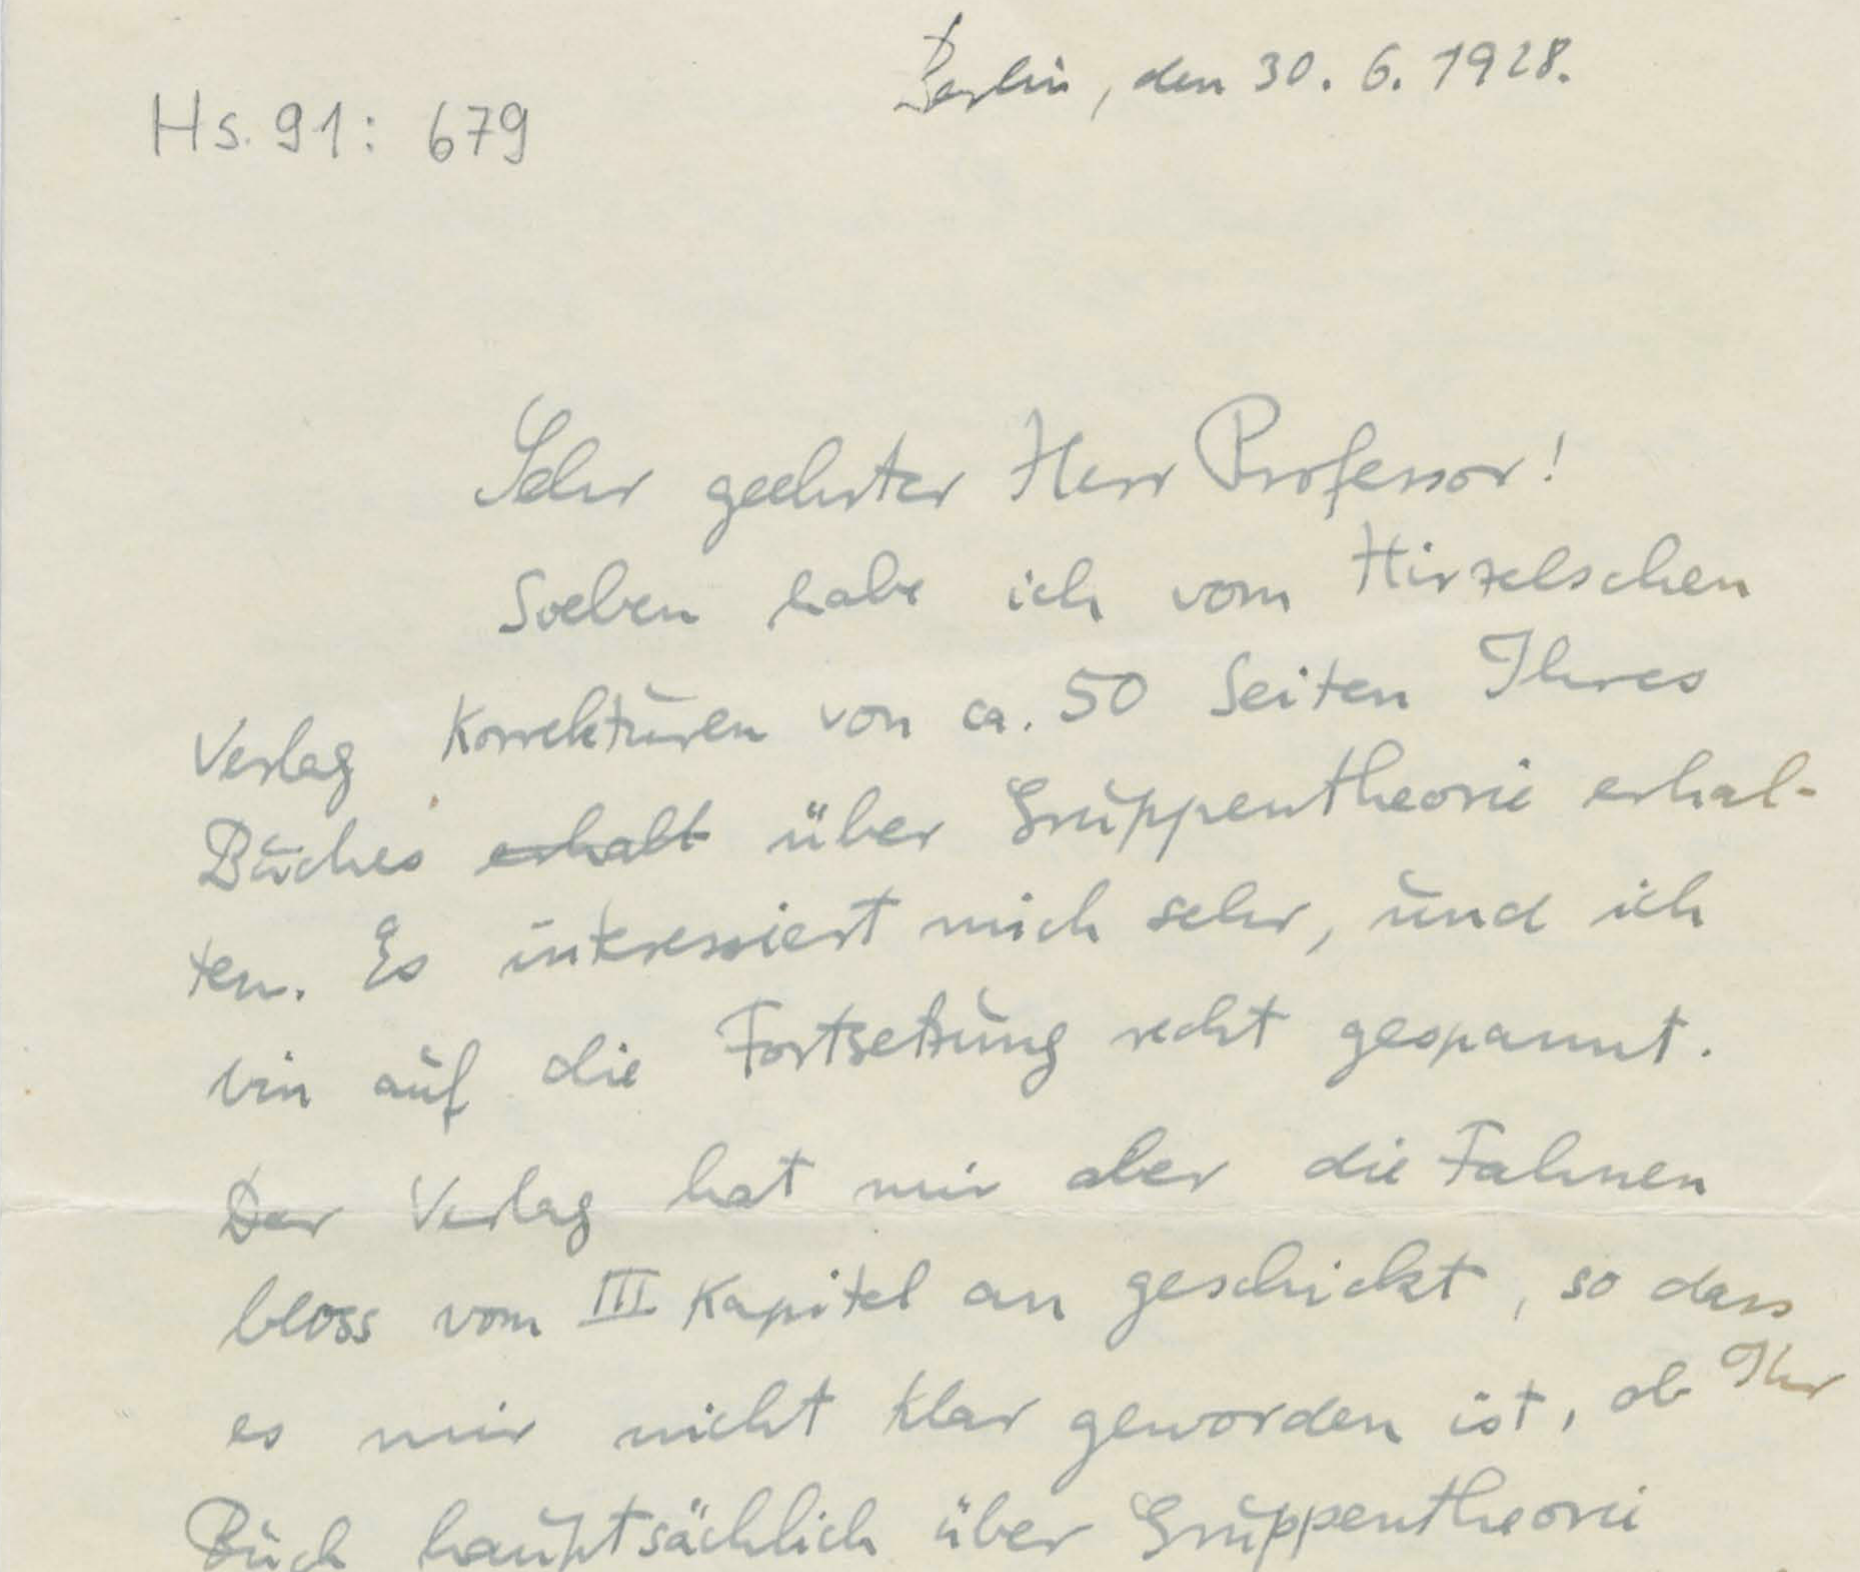 Berlin, den 30. 6. 1928.
Hs. 91: 679
Sehr geehrter Herr Professor!
Soeben habe ich vom Hirzelschen
Verlag Korrekturen von ca. 50 Seiten Ihres
Buches erhalt über Gruppentheorie erhal-
ten. Es interessiert mich sehr, und ich
bin auf die Fortsetzung recht gespannt.
Der Verlag hat mir aber die Fahnen
bloss vom III Kapitel an geschickt, so dass
es mir nicht klar geworden ist, ob Ihr
Buch hauptsächlich über Gruppentheorie